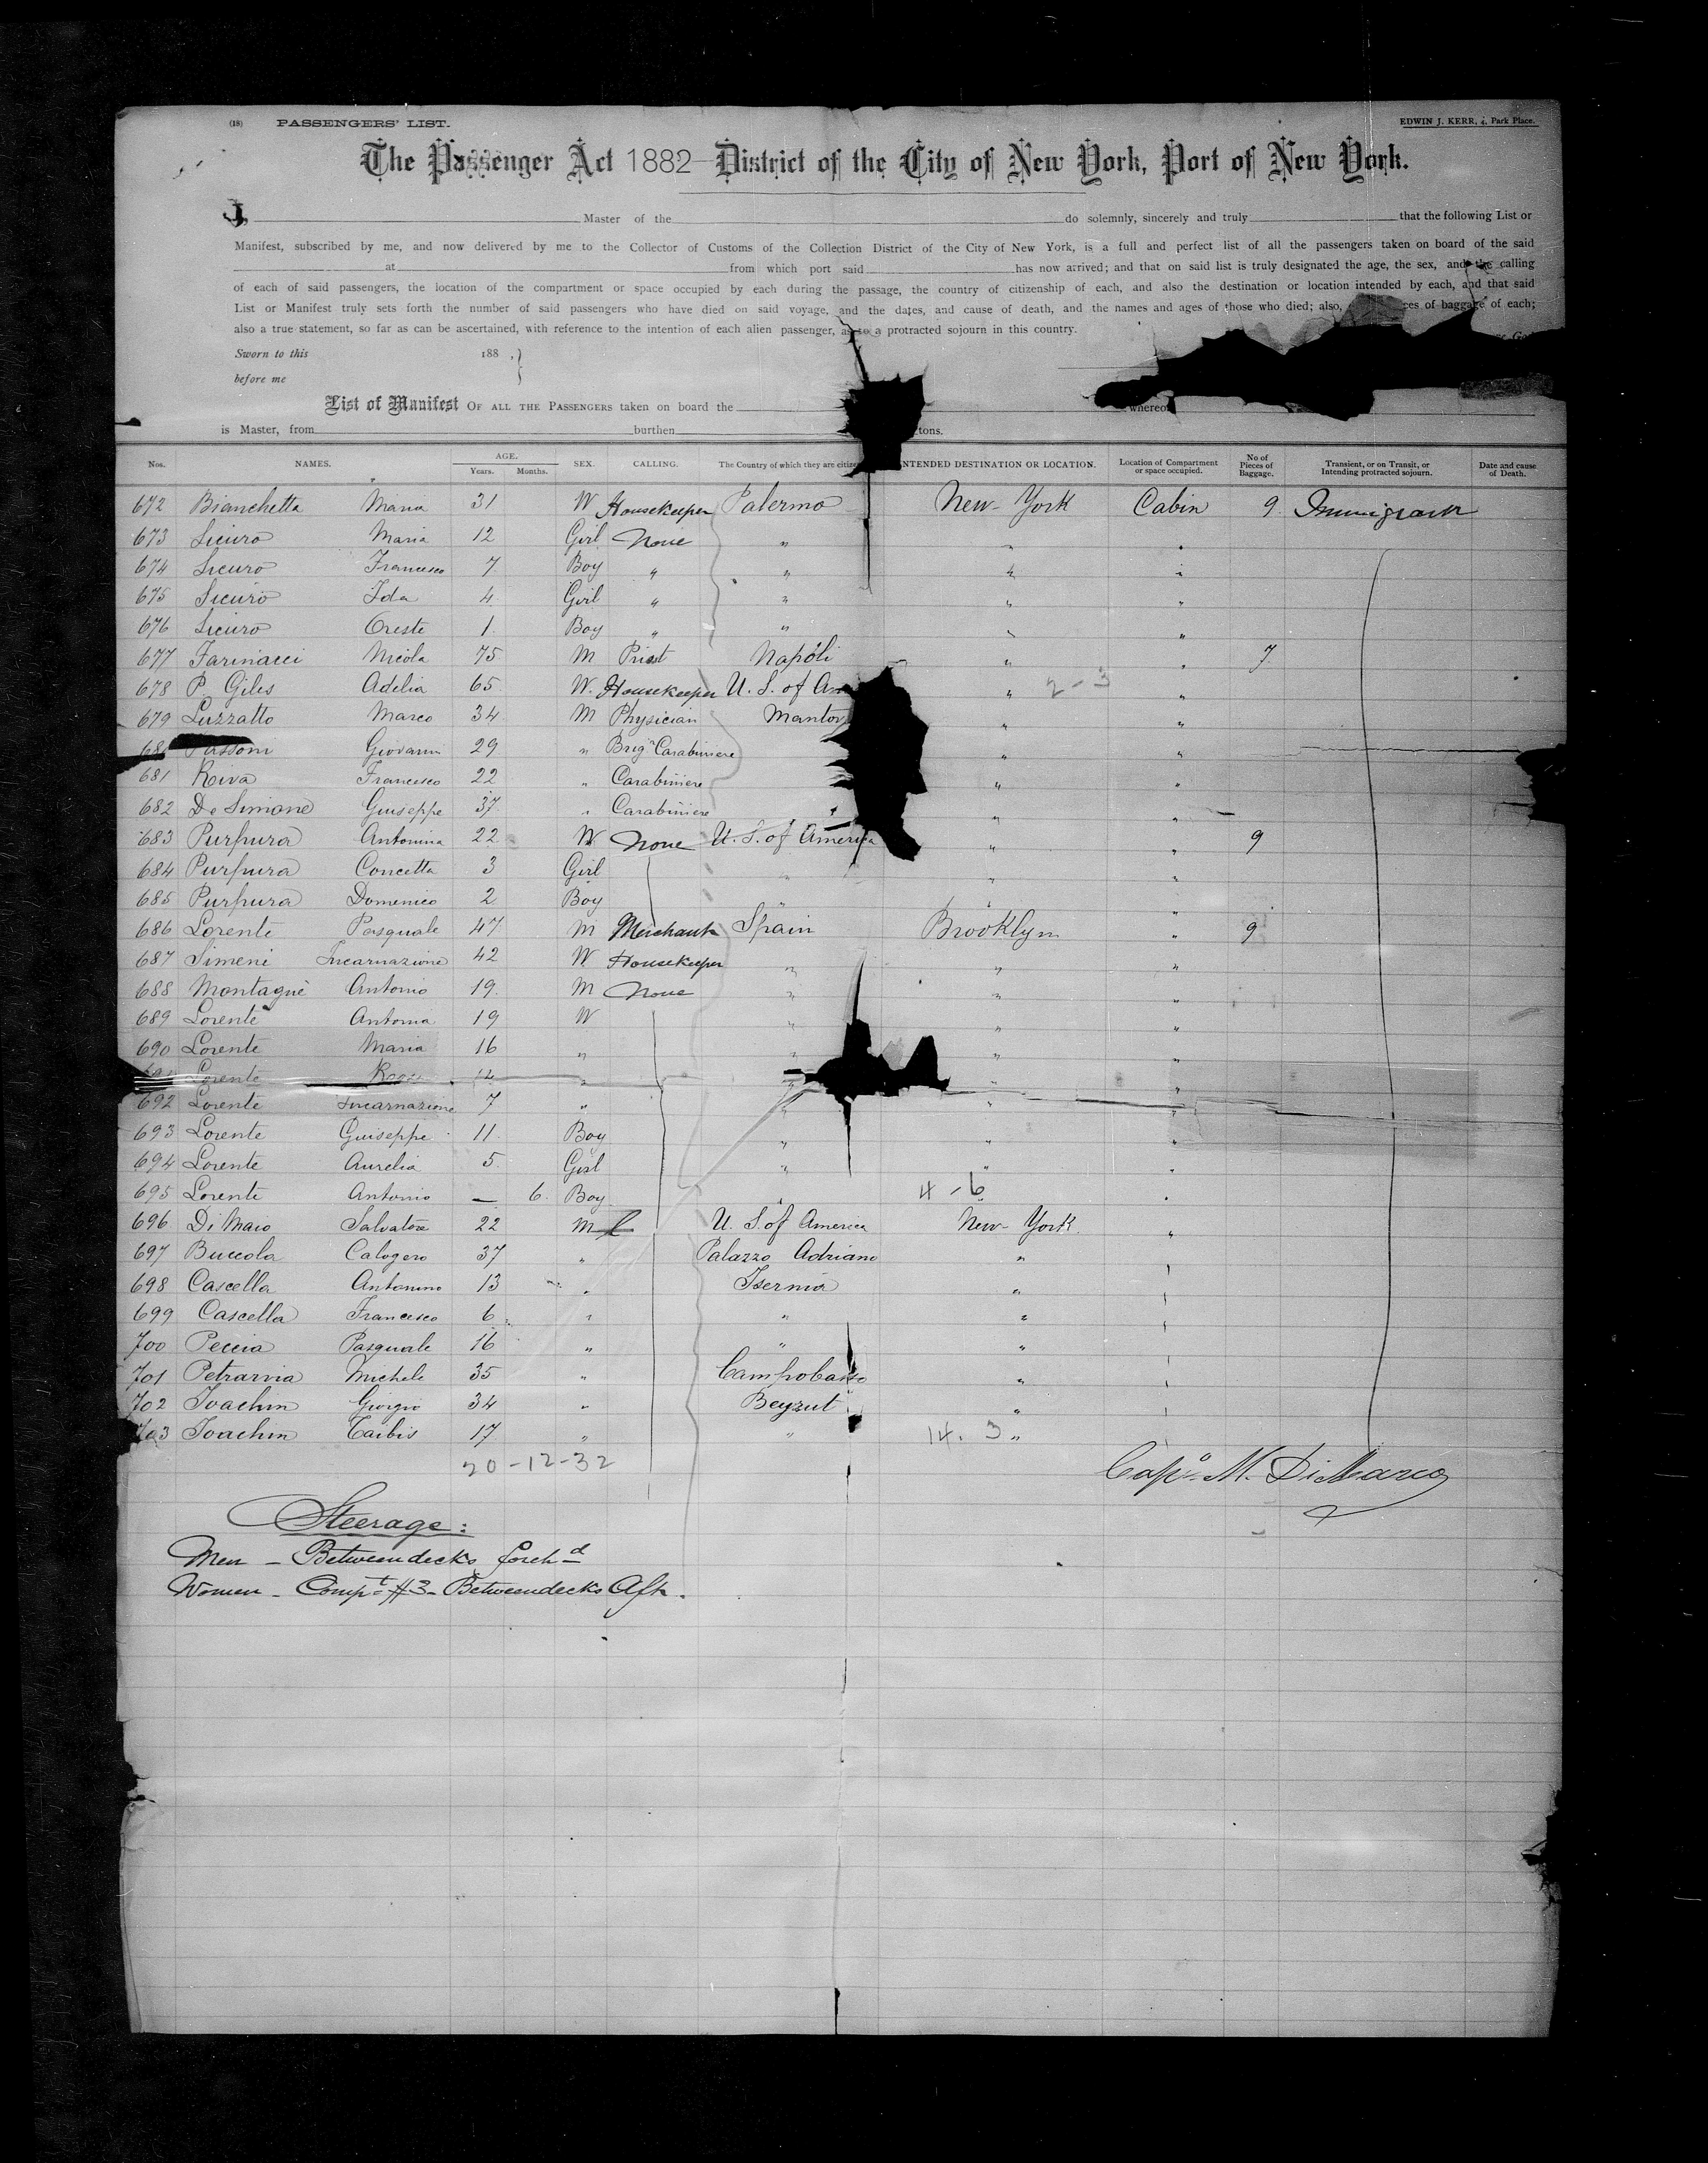 (18) PASSENGERS' LIST. EDWIN J. KERR, 4, Park Place.
The Passenger Act 1882 District of the City of New York, Port of New York.
I, Master of the do solemnly, sincerely and truly that the following List or
Manifest, subscribed by me, and now delivered by me to the Collector of Customs of the Collection District of the City of New York, is a full and perfect list of all the passengers taken on board of the said
at from which port said has now arrived; and that on said list is truly designated the age, the sex, and the calling
of each of said passengers, the location of the compartment or space occupied by each during the passage, the country of citizenship of each, and also the destination or location intended by each, and that said
List or Manifest truly sets forth the number of said passengers who have died on said voyage, and the dates, and cause of death, and the names and ages of those who died; also, of baggage of each;
also a true statement, so far as can be ascertained, with reference to the intention of each alien passenger, as to a protracted sojourn in this country.
Sworn to this 188 .
before me
List of Manifest OF ALL THE PASSENGERS taken on board the whereof
is Master, from burthen tons.
Nos. NAMES. AGE. Years. Months. SEX. CALLING. The Country of which they are INTENDED DESTINATION OR LOCATION. Location of Compartment or space occupied. No of Pieces of Baggage. Transient, or on Transit, or Intending protracted sojourn. Date and cause of Death.
672 Bianchetta Maria 31 W Housekeeper Palermo New-York Cabin 9 Immigrant
673 Sicuro Maria 12 Girl None " " "
674 Sicuro Francesco 7 Boy " " " "
675 Sicuro Ida 4 Girl " " " "
676 Sicuro Oreste 1 Boy " " " "
677 Farinacci Nicola 75 M Priest Napoli " " 7
678 P. Giles Adelia 65 W. Housekeeper U. S. of " 2-3 "
679 Luzzatto Marco 34 M Physician " "
Giovanni 29 " Brig Carabiniere " "
681 Riva Francesco 22 " Carabiniere " "
682 De Simone Giuseppe 37 " Carabiniere " "
683 Purpura Antonina 22 W None U. S. of America " " 9
684 Purpura Concetta 3 Girl " " "
685 Purpura Domenico 2 Boy " " "
686 Lorente Pasquale 47 M Merchant Spain Brooklyn " 9
687 Simeni Incarnazione 42 W Housekeeper " " "
688 Montagne Antonio 19 M None " " "
689 Lorente Antonia 19 W " " "
690 Lorente Maria 16 " " " "
Lorente "
692 Lorente Incarnazione 7 " " " "
693 Lorente Guiseppe 11 Boy " " "
694 Lorente Aurelia 5 Girl " " "
695 Lorente Antonio — 6 Boy " 4-6 "
696 Di Maio Salvatore 22 M U. S. of America New-York "
697 Buccola Calogero 37 " Palazzo Adriano "
698 Cascella Antonino 13 " Isernia "
699 Cascella Francesco 6 " " "
700 Peccia Pasquale 16 " " "
701 Petrarria Michele 35 " Campobasso "
702 Joachim Giorgio 34 " Beyrut "
703 Joachim Taibis 17 " " 14. 3 "
20-12-32 Capn. M. DiMarco
Steerage:
Men - Betweendecks forehd
Women - Compt #3 - Betweendecks Aft.